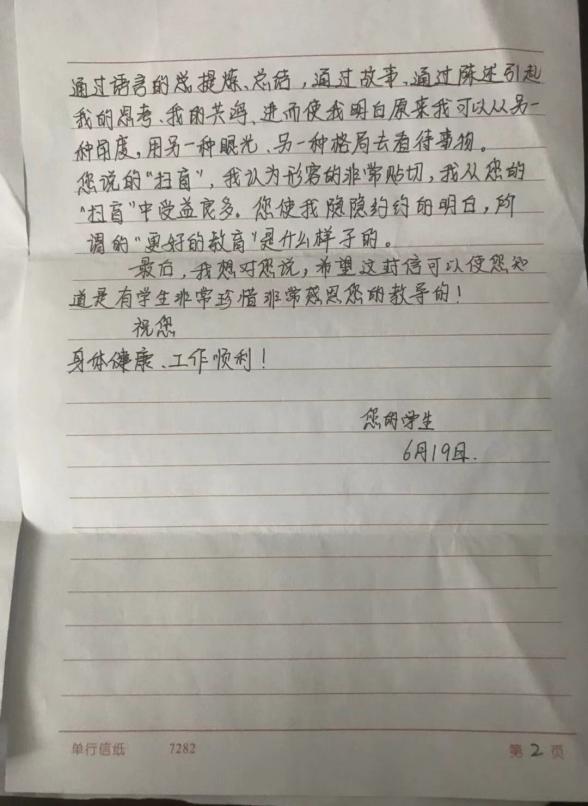 通过语言的总提炼、总结，通过故事、通过陈述引起
我的思考、我的共鸣、进而使我明白原来我可以从另一
种角度，用另一种眼光、另一种格局去看待事物。
您说的“扫盲”，我认为形容的非常贴切，我从您的
“扫盲”中受益良多。您使我隐隐约约的明白，所
谓的“更好的教育”是什么样子的。
最后，我想对您说，希望这封信可以使您知
道是有学生非常珍惜非常感恩您的教导的！
祝您
身体健康、工作顺利！
您的学生
6月19日.
单行信纸 7282 第2页